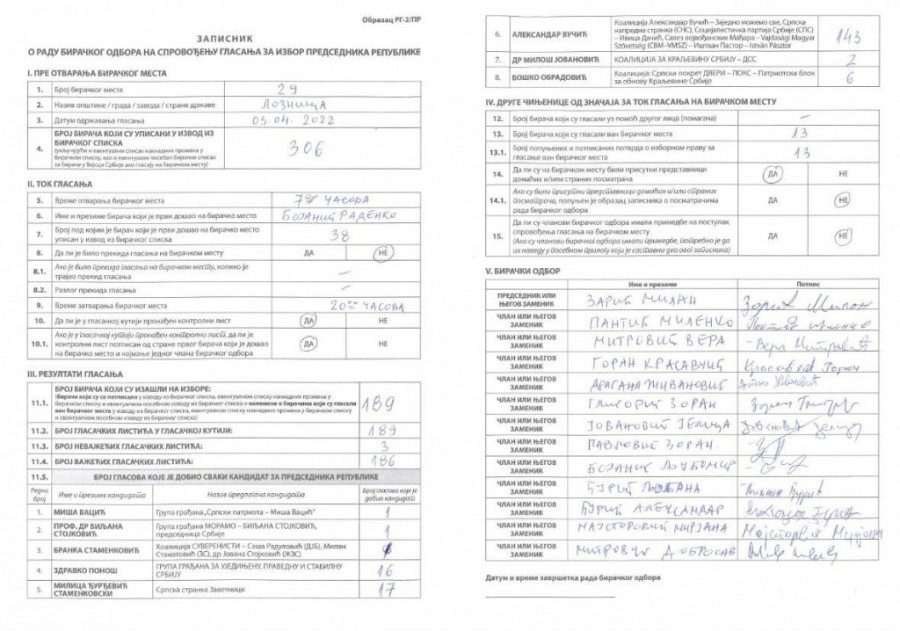 Образац РГ-2/ПР
ЗАПИСНИК
О РАДУ БИРАЧКОГ ОДБОРА НА СПРОВОЂЕЊУ ГЛАСАЊА ЗА ИЗБОР ПРЕДСЕДНИКА РЕПУБЛИКЕ
I. ПРЕ ОТВАРАЊА БИРАЧКОГ МЕСТА
1. Број бирачког места 29
2. Назив општине / града / завода / стране државе ЛОЗНИЦА
3. Датум одржавања гласања 03.04.2022
4. БРОЈ БИРАЧА КОЈИ СУ УПИСАНИ У ИЗВОД ИЗ
БИРАЧКОГ СПИСКА 306
(укључујући и евентуални списак накнадних промена у
бирачком списку, као и евентуални посебан бирачки списак
за бираче у Војсци Србије ако гласају на бирачком месту)
II. ТОК ГЛАСАЊА
5. Време отварања бирачког места 7 ЧАСОВА
6. Име и презиме бирача који је први дошао на бирачко место БОЈАНИЋ РАДЕНКО
7. Број под којим је бирач који је први дошао на бирачко место
уписан у извод из бирачког списка 38
8. Да ли је било прекида гласања на бирачком месту ДА НЕ
8.1. Ако је било прекида гласања на бирачком месту, колико је
трајао прекид гласања –
8.2. Разлог прекида гласања –
9. Време затварања бирачког места 20 ЧАСОВА
10. Да ли је у гласачкој кутији пронађен контролни лист ДА НЕ
10.1. Ако је у гласачкој кутији пронађен контролни лист, да ли је
контролни лист потписан од стране првог бирача који је дошао
на бирачко место и најмање једног члана бирачког одбора ДА НЕ
III. РЕЗУЛТАТИ ГЛАСАЊА
11.1. БРОЈ БИРАЧА КОЈИ СУ ИЗАШЛИ НА ИЗБОРЕ: 189
11.2. БРОЈ ГЛАСАЧКИХ ЛИСТИЋА У ГЛАСАЧКОЈ КУТИЈИ: 189
11.3. БРОЈ НЕВАЖЕЋИХ ГЛАСАЧКИХ ЛИСТИЋА: 3
11.4. БРОЈ ВАЖЕЋИХ ГЛАСАЧКИХ ЛИСТИЋА: 186
11.5. БРОЈ ГЛАСОВА КОЈЕ ЈЕ ДОБИО СВАКИ КАНДИДАТ ЗА ПРЕДСЕДНИКА РЕПУБЛИКЕ
Редни број Име и презиме кандидата Назив предлагача кандидата Број гласова који је добио кандидат
1. МИША ВАЦИЋ Група грађана „Српски патриота – Миша Вацић" 1
2. ПРОФ. ДР БИЉАНА СТОЈКОВИЋ Група грађана МОРАМО – БИЉАНА СТОЈКОВИЋ, председница Србије 1
3. БРАНКА СТАМЕНКОВИЋ Коалиција СУВЕРЕНИСТИ – Саша Радуловић (ДЈБ), Милан
Стаматовић (ЗС), др Јована Стојковић (ЖЗС)
4. ЗДРАВКО ПОНОШ ГРУПА ГРАЂАНА ЗА УЈЕДИЊЕНУ, ПРАВЕДНУ И СТАБИЛНУ
СРБИЈУ 16
5. МИЛИЦА ЂУРЂЕВИЋ СТАМЕНКОВСКИ Српска странка Заветници 17
6. АЛЕКСАНДАР ВУЧИЋ Коалиција Александар Вучић – Заједно можемо све, Српска
напредна странка (СНС), Социјалистичка партија Србије (СПС)
– Ивица Дачић, Савез војвођанских Мађара – Vajdasági Magyar
Szövetség (СВМ–VMSZ) – Иштван Пастор – István Pásztor 143
7. ДР МИЛОШ ЈОВАНОВИЋ КОАЛИЦИЈА ЗА КРАЉЕВИНУ СРБИЈУ – ДСС 2
8. БОШКО ОБРАДОВИЋ Коалиција: Српски покрет ДВЕРИ – ПОКС – Патриотски блок
за обнову Краљевине Србије 6
IV. ДРУГЕ ЧИЊЕНИЦЕ ОД ЗНАЧАЈА ЗА ТОК ГЛАСАЊА НА БИРАЧКОМ МЕСТУ
12. Број бирача који су гласали уз помоћ другог лица (помагача) –
13. Број бирача који су гласали ван бирачког места 13
13.1. Број попуњених и потписаних потврда о изборном праву за
гласање ван бирачког места 13
14. Да ли су на бирачком месту били присутни представници
домаћих и/или страних посматрача ДА НЕ
14.1. Ако су били присутни представници домаћих и/или страних
посматрача, попуњен је образац записника о посматрачима
рада бирачког одбора ДА НЕ
15. Да ли су чланови бирачког одбора имали примедбе на поступак
спровођења гласања на бирачком месту
(Ако су чланови бирачког одбора имали примедбе, потребно је да
их наведу у посебном прилогу који је саставни део овог записника) ДА НЕ
V. БИРАЧКИ ОДБОР
Име и презиме Потпис
ПРЕДСЕДНИК ИЛИ ЊЕГОВ ЗАМЕНИК ЗАРИЋ МИЛАН
ЧЛАН ИЛИ ЊЕГОВ ЗАМЕНИК ПАНТИЋ МИЛЕНКО
ЧЛАН ИЛИ ЊЕГОВ ЗАМЕНИК МИТРОВИЋ ВЕРА
ЧЛАН ИЛИ ЊЕГОВ ЗАМЕНИК ГОРАН КРАСАВЧИЋ
ЧЛАН ИЛИ ЊЕГОВ ЗАМЕНИК ДРАГАНА ЖИВАНОВИЋ
ЧЛАН ИЛИ ЊЕГОВ ЗАМЕНИК ГЛИГОРИЋ ЗОРАН
ЧЛАН ИЛИ ЊЕГОВ ЗАМЕНИК ЈОВАНОВИЋ ЈЕЛИЦА
ЧЛАН ИЛИ ЊЕГОВ ЗАМЕНИК ПАВЛОВИЋ ЗОРАН
ЧЛАН ИЛИ ЊЕГОВ ЗАМЕНИК БОЈАНИЋ ЉУБОМИР
ЧЛАН ИЛИ ЊЕГОВ ЗАМЕНИК ЂУРИЋ
ЧЛАН ИЛИ ЊЕГОВ ЗАМЕНИК ЂУРИЋ АЛЕКСАНДАР
ЧЛАН ИЛИ ЊЕГОВ ЗАМЕНИК МАЈСТОРОВИЋ МИРЈАНА
ЧЛАН ИЛИ ЊЕГОВ ЗАМЕНИК МИТРОВИЋ ДОБРОСАВ
Датум и време завршетка рада бирачког одбора